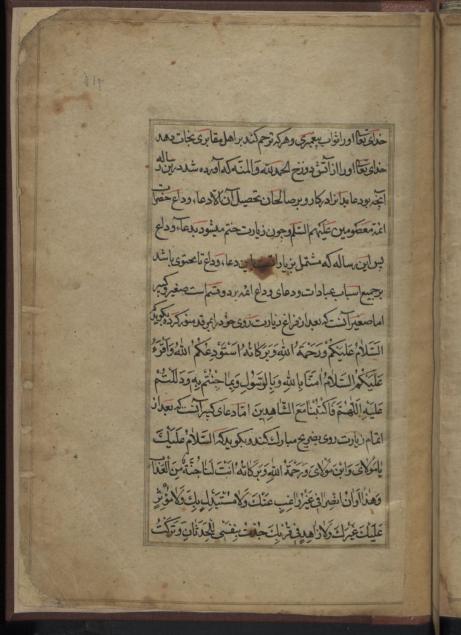 خدای تعالی او را ثواب پیغمبری و هر که ترحم کند بر اهل مقابری نجات دهد
خدای تعالی او را از آتش دوزخ الحمد لله والمنه که آورده شد درین رساله
آنچه بود عابدانرا در کار و بر صالحان تحصیل آن الا دعاء وداع حضرات
ائمه معصومین علیهم السلم و چون زیارت ختم میشود بدعاء وداع
پس این رساله که مشتمل بر زیارات دعاء وداع تا محتوی باشد
بر جمیع اسباب عبادات و دعای وداع ائمه بر دو قسم است صغیر و کبیر
اما صغیر آنست که بعد از فراغ زیارت روی خود را بمرقد منور کرده بگوید
السَّلامُ عَلَیْکُمْ وَرَحْمَةُ اللهِ وَبَرَکاتُهُ اَسْتَوْدِعُکُمُ اللهَ وَاَقْرَءُ
عَلَیْکُمُ السَّلامُ امَنّا بِاللهِ وَبِالرَّسُولِ وَبِما جِئْتُمْ بِهِ وَدَلَلْتُمْ
عَلَیْهِ اَللّهُمَّ فَاکْتُبْنا مَعَ الشّاهِدینَ اما دعای کبیر آنست که بعد از
اتمام زیارت روی بضریح مبارک کند و بگوید که السَّلامُ عَلَیْكَ
یا مَوْلایَ وَابْنَ مَوْلایَ وَرَحْمَةُ اللهِ وَبَرَکاتُهُ اَنْتَ لَنا جُنَّةٌ مِنَ الْعَذابِ
وَهذا اَوانُ انْصِرافی غَیْرَ راغِبٍ عَنْكَ وَلا مُسْتَبْدِلٍ بِكَ وَلا مُؤْثِرٍ
عَلَیْكَ غَیْرَكَ وَلا زاهِدٍ فی قُرْبِكَ جُدْتُ بِنَفْسی لِلْحَدَثانِ وَتَرَکْتُ